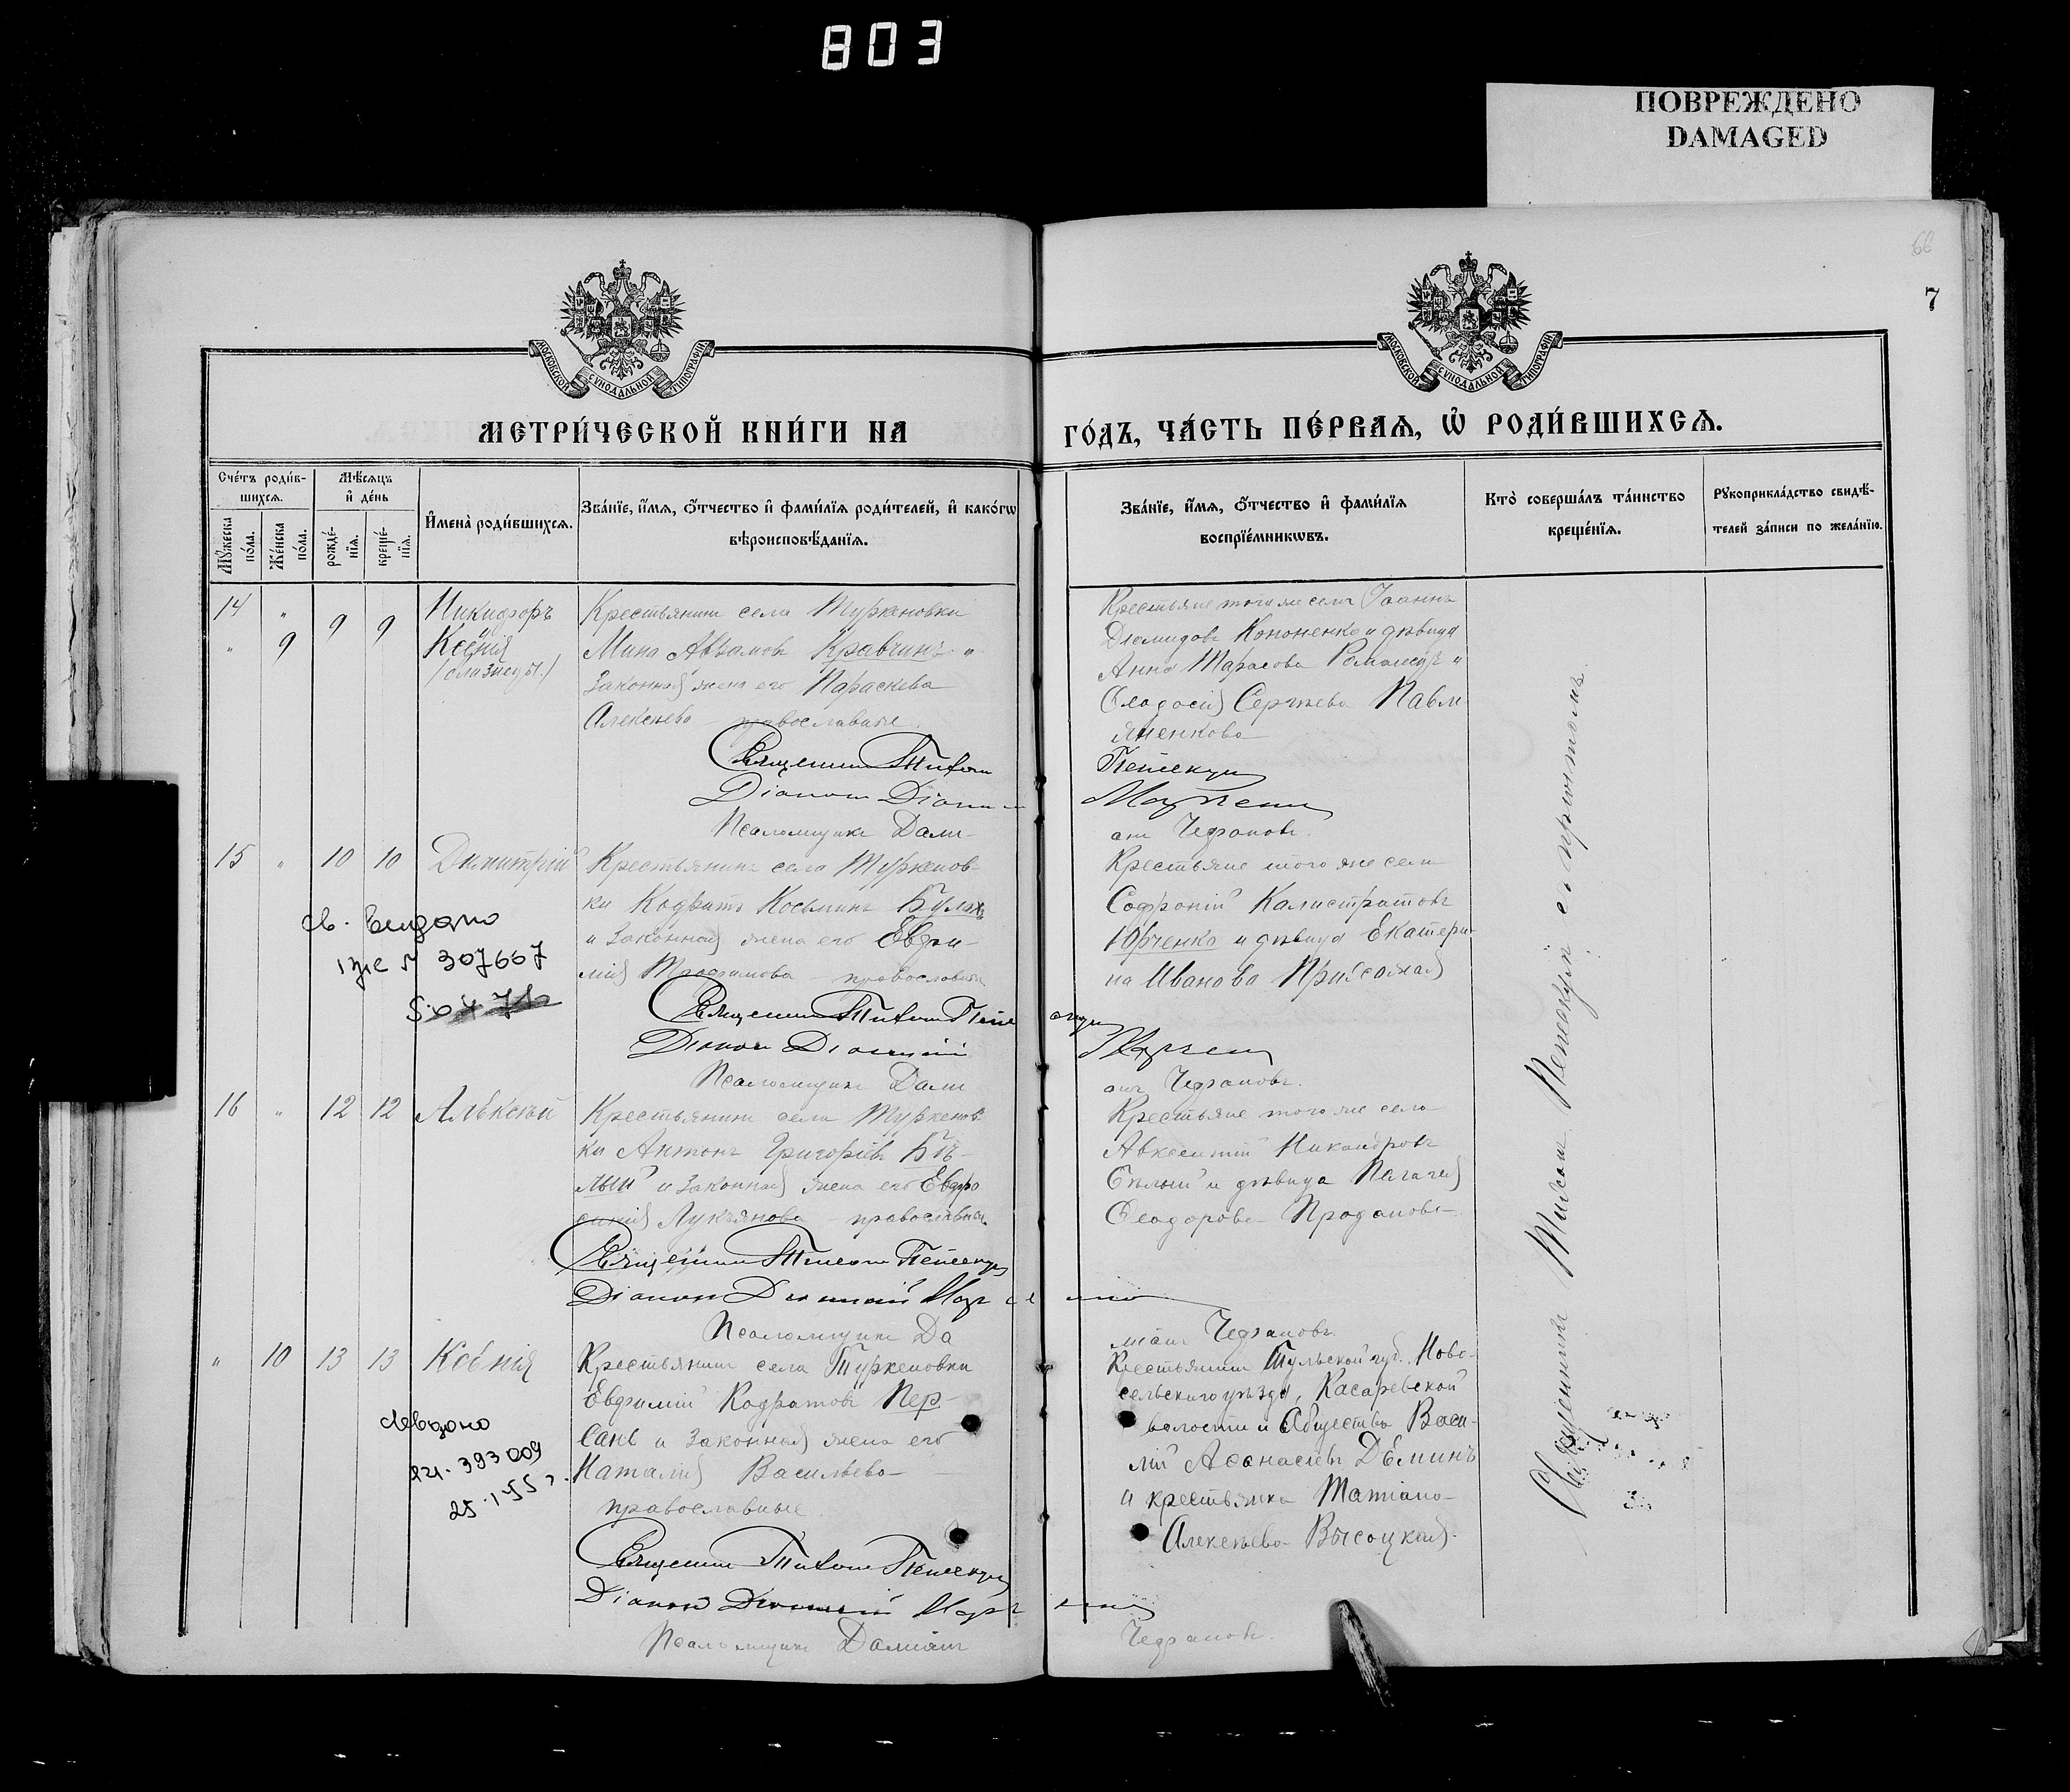 803
ПОВРЕЖДЕНО
DAMAGED
66
7
МОСКОВСКОЙ СѴНОДАЛЬНОЙ ТИПОГРАФІИ
МОСКОВСКОЙ СѴНОДАЛЬНОЙ ТИПОГРАФІИ
МЕТРИ́ЧЕСКОЙ КНИ́ГИ НА
ГО́ДЪ, ЧА́СТЬ ПЕ́РВАѦ, Ѽ РОДИ́ВШИХСѦ.
Сче́тъ роди́в-
шихсѧ.
Мꙋ́жеска
по́ла.
Же́нска
по́ла.
Мѣ́сѧцъ
и҆ де́нь
рожде́-
нїѧ.
креще́-
нїѧ.
И҆мена̀ роди́вшихсѧ.
Зва́нїе, и҆́мѧ, ѻ҆́тчество и҆ фами́лїѧ роди́телей, и҆ како́гѡ
вѣроисповѣ́данїѧ.
Зва́нїе, и҆́мѧ, ѻ҆́тчество и҆ фами́лїѧ
воспрїе́мникѡвъ.
Кто̀ соверша́лъ та́инство
креще́нїѧ.
Рꙋкоприкла́дство свидѣ́-
телей за́писи по жела́нїю.
14 " 9 9 Никифоръ
" 9 Ксенія
/близнецы./
Крестьянинъ села Туркеновки
Мина Авваамовъ Кравчинъ и
законная жена его Параскева
Алексѣева – православные.
Священникъ Тихонъ
Діаконъ Діони
Псаломщикъ Дами-
Крестьяне того же села Іоаннъ
Діомидовъ Кононенко и дѣвица
Анна Тарасова и
Ѳеодосія Сергѣева Павл
Пепескулъ
анъ Чефрановъ.
15 " 10 10 Димитрій
Крестьянинъ села Туркенов-
ки Кодратъ Косьминъ Булахъ
и законная жена его Евфи-
мія Трофимова – православные
Священникъ Тихонъ
Діаконъ Діонисій
Псаломщикъ Дами
Крестьяне того же села
Софроній Калистратовъ
Юрченко и дѣвица Екатери-
на Иванова
анъ Чефрановъ.
св. выдано
307667
16 " 12 12 Алексѣй
Крестьянинъ села Туркенов-
ки Антонъ Григоріевъ Бѣ-
лый и законная жена его Евфро
синія Лукьянова – православные.
Священникъ Тихонъ Пепескулъ
Діаконъ Діонисій
Псаломщикъ Да
Крестьяне того же села
Авксентій Никандровъ
Бѣлый и дѣвица Пелагея
Ѳеодорова Проданова
міанъ Чефрановъ.
" 10 13 13 Ксенія
Крестьянинъ села Туркеновки
Евфимій Кодратовъ Пер-
сань и законная жена его
Наталія Васильева –
православные.
Священникъ Тихонъ Пепескулъ
Діаконъ Діонисій
Псаломщикъ Даміанъ
Крестьянинъ Тульской губ. Ново-
сельского уѣзда, Касаревской
волости и общества Васи-
лій Аѳанасіевъ Деминъ
и крестьянка Татіана
Алексѣева Высоцкая.
Чефрановъ.
393009
Священникъ Тихонъ Пепескулъ съ причтомъ